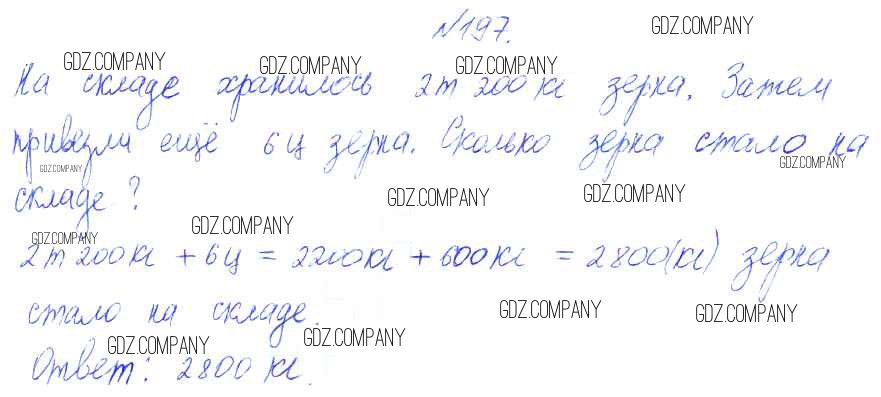 №197. GDZ.COMPANY
GDZ.COMPANY GDZ.COMPANY GDZ.COMPANY
На складе хранилось 2т 200 кг зерна. Затем
привезли ещё 6 ц зерна. Сколько зерна стало на
GDZ.COMPANY GDZ.COMPANY
складе? GDZ.COMPANY GDZ.COMPANY
GDZ.COMPANY GDZ.COMPANY
2т 200 кг + 6 ц = 2200 кг + 600 кг = 2800 (кг) зерна
стало на складе. GDZ.COMPANY GDZ.COMPANY
GDZ.COMPANY GDZ.COMPANY
Ответ: 2800 кг.